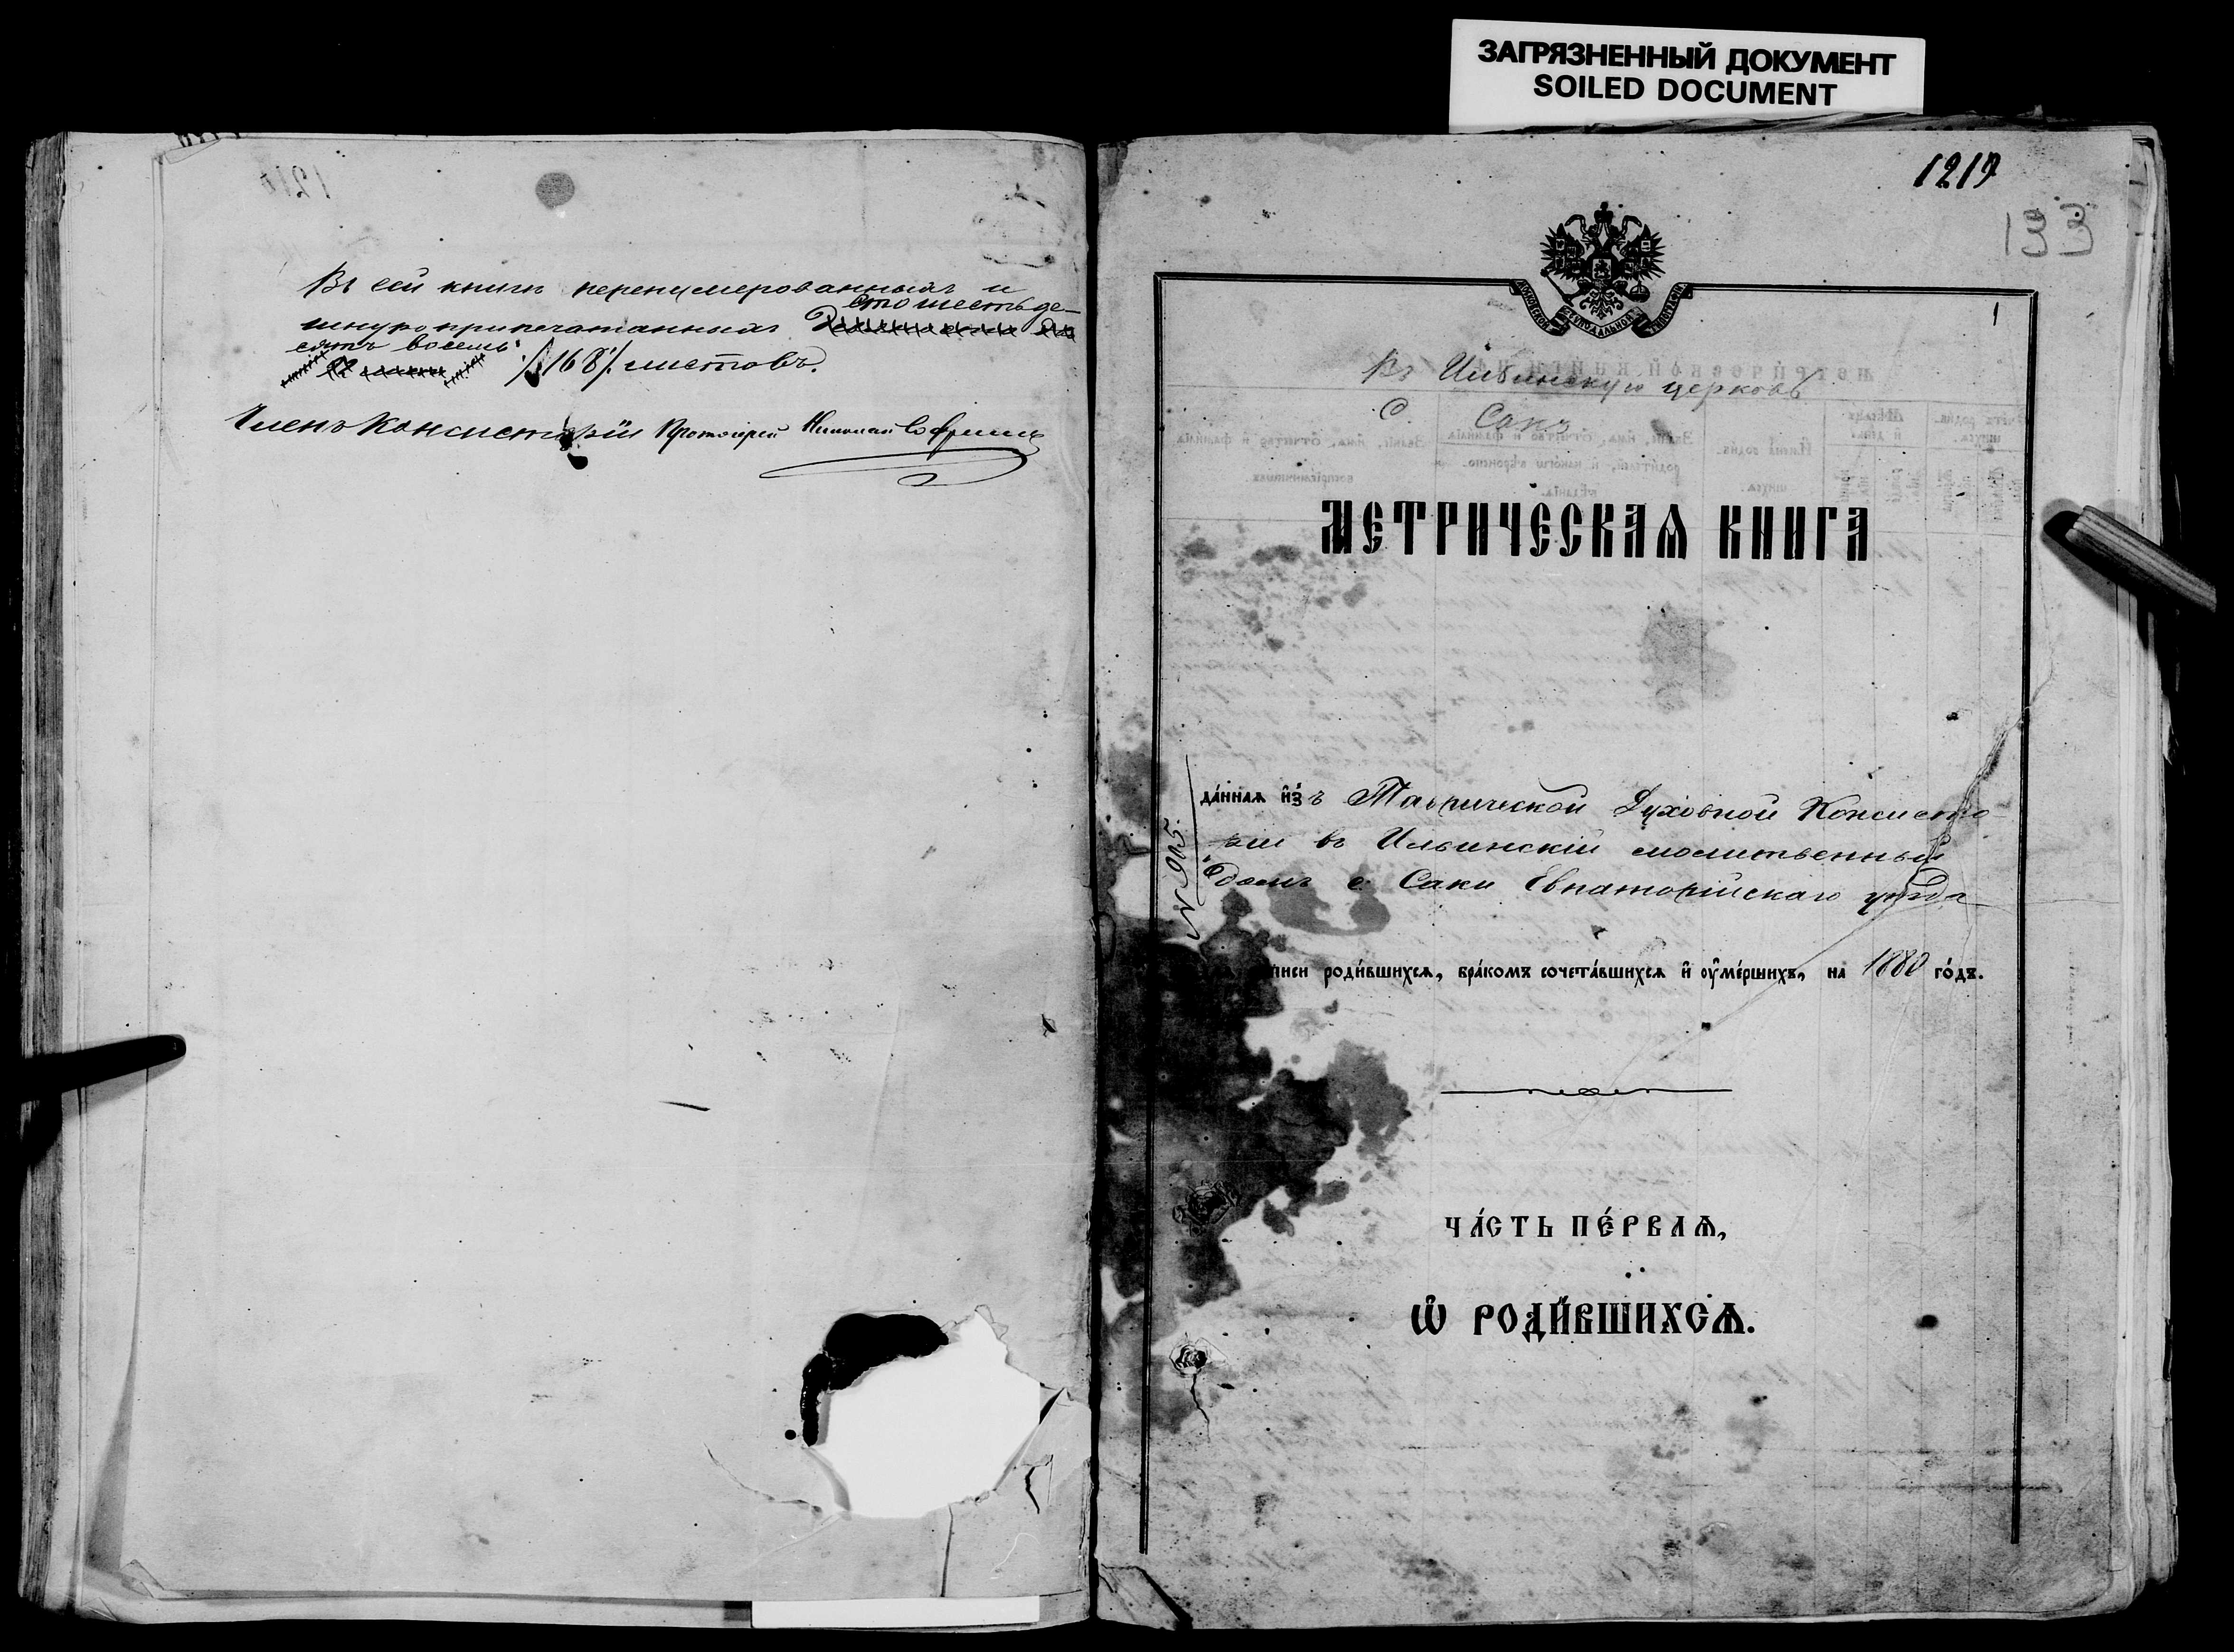 ЗАГРЯЗНЕННЫЙ ДОКУМЕНТ
SOILED DOCUMENT
Въ сей книгѣ перенумерованныхъ и
сто шестьде-
шнуроприпечатанныхъ
сятъ восемь
/168/ листовъ.
Членъ Консисторіи Протоіерей Николай
1219
133
1
МОСКОВСКОЙ СѴНОДАЛЬНОЙ ТИПОГРАФІИ
Въ Ильинскую церковь
С Сакъ
МЕТРИЧЕСКАЯ КНИГА
да́нная и҆зъ Таврической Духовной Консисто-
ріи въ Ильинскій молитвенный
домъ с. Саки Евпаторійскаго уѣзда
№ 905.
писи роди́вшихся, бра́комъ сочета́вшихся и҆ ᲂу҆ме́ршихъ, на 1880 го́дъ.
ЧА́СТЬ ПЕ́РВАЯ,
Ѽ РОДИ́ВШИХСЯ.